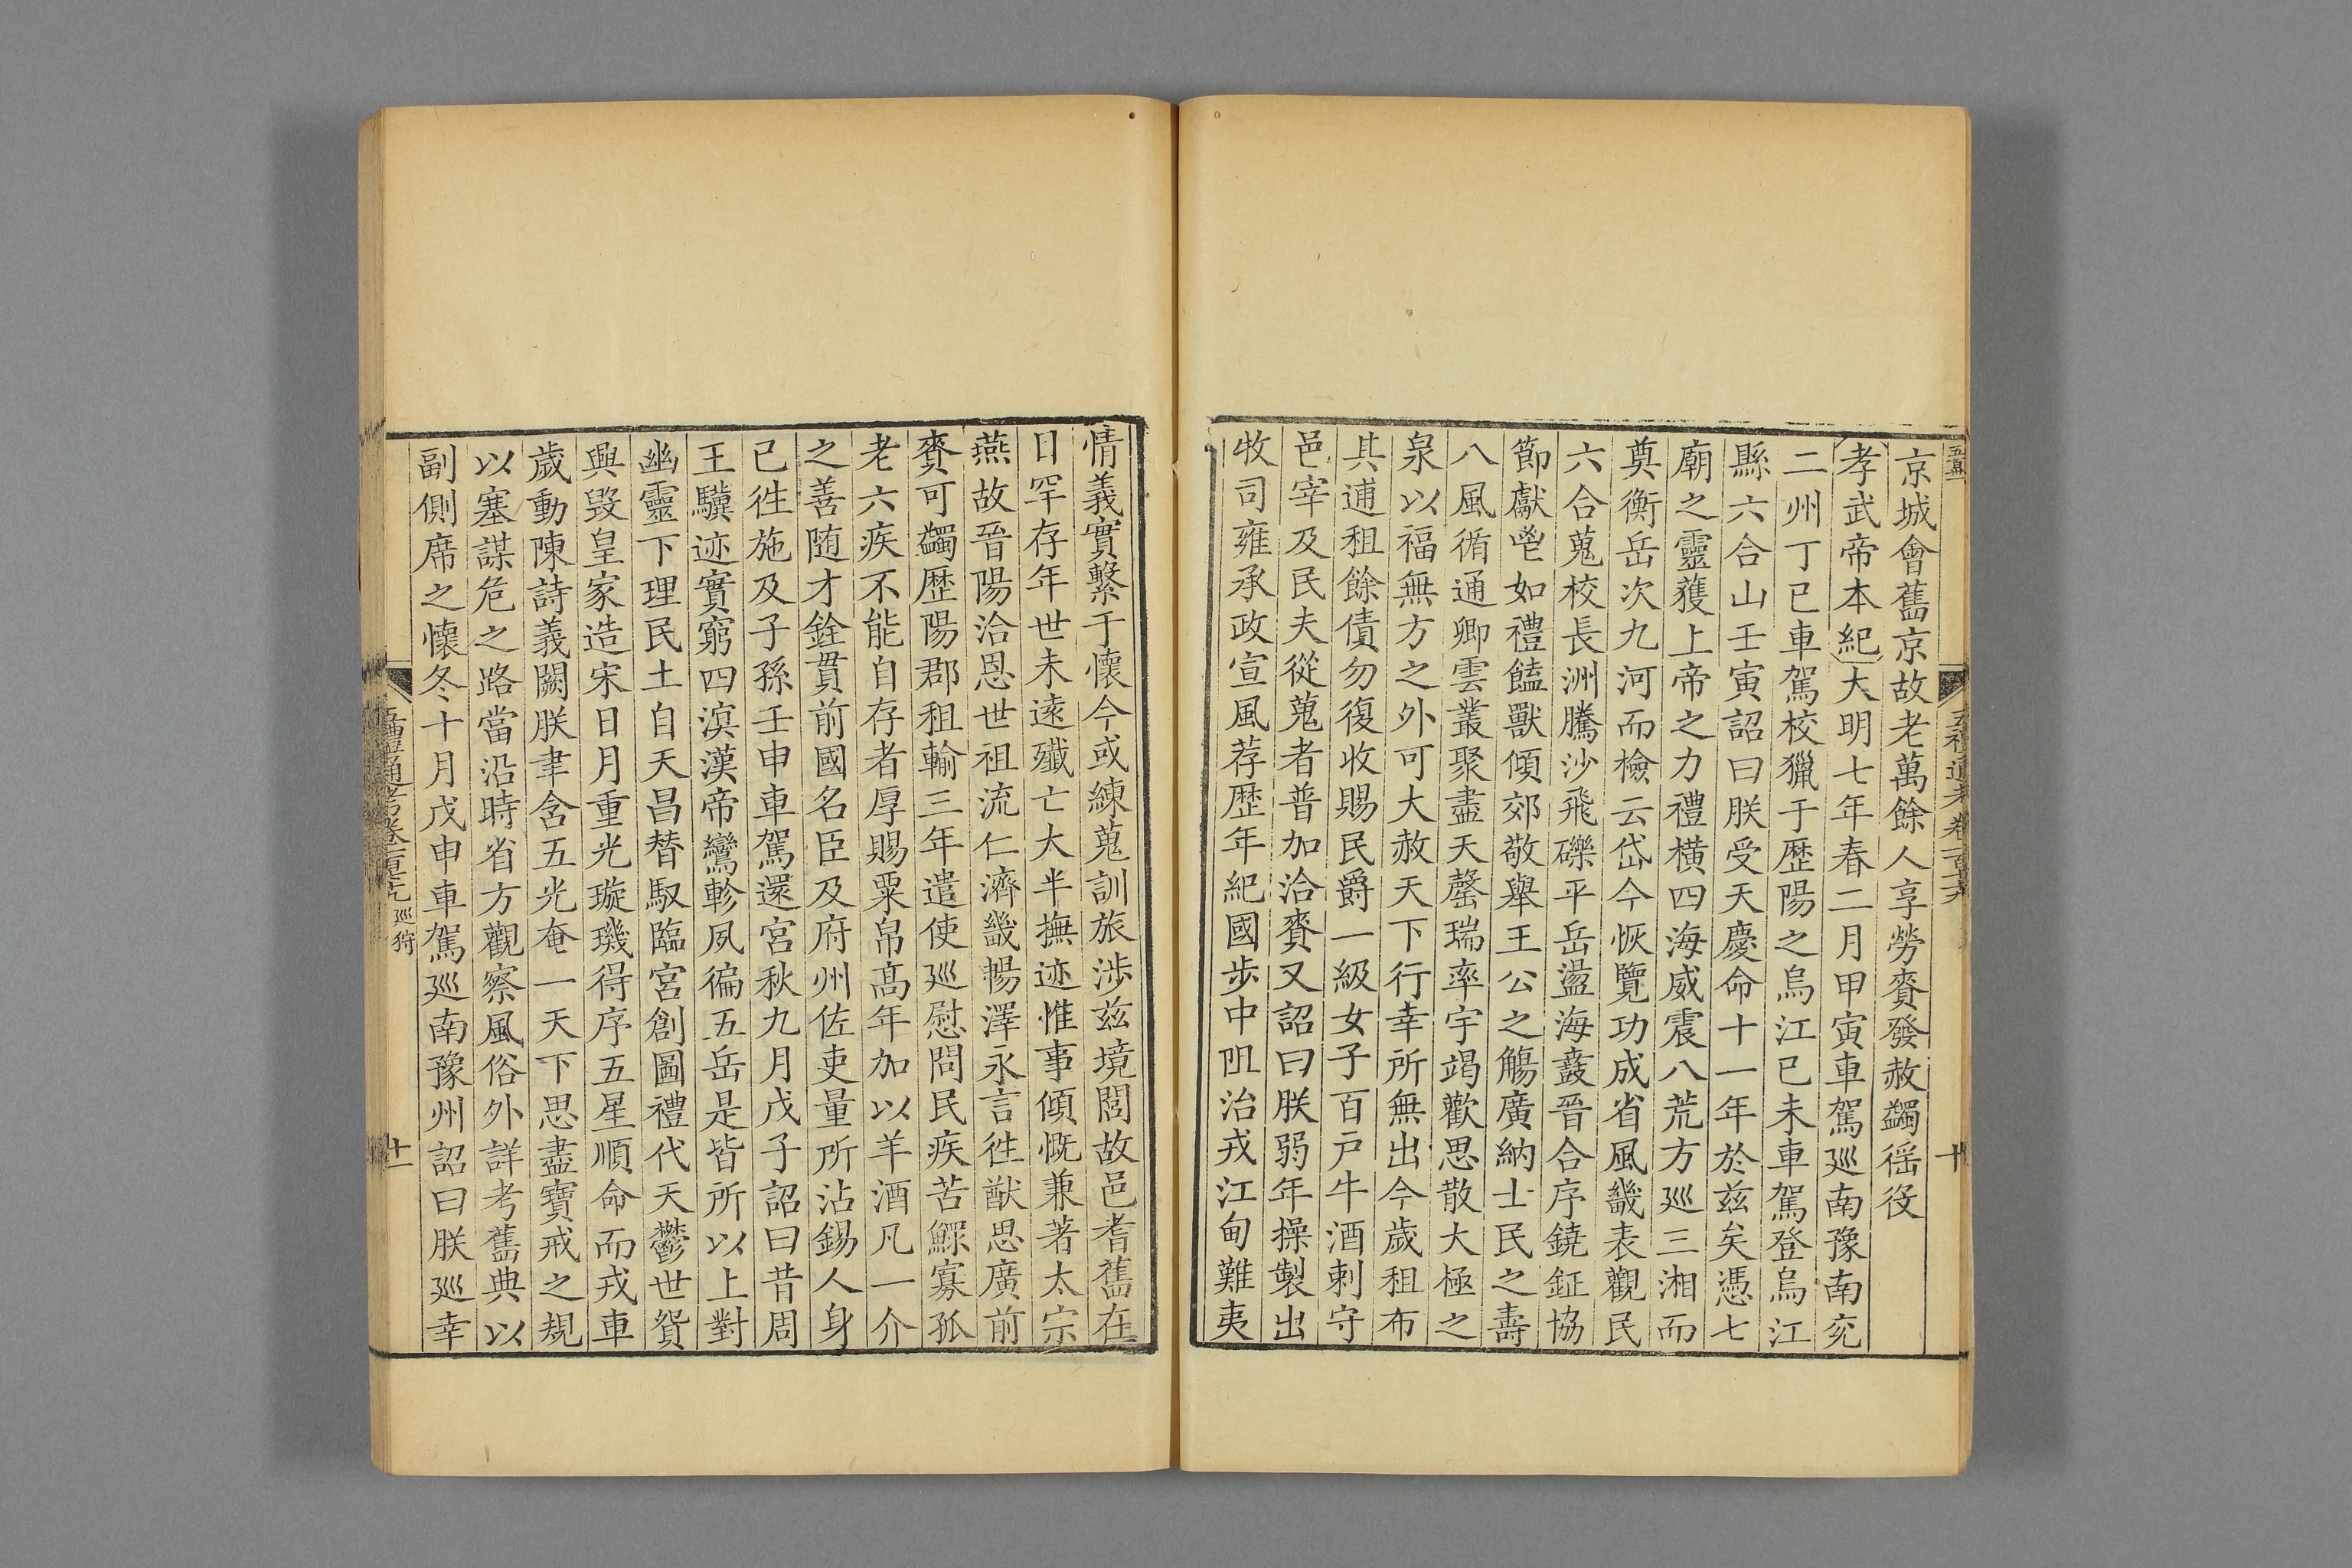 京城會舊京故老萬餘人享勞賚發赦蠲徭役
孝武帝本紀大明七年春二月甲寅車駕巡南豫南兖
二州丁巳車駕校獵于歴陽之烏江己未車駕登烏江
縣六合山壬寅詔曰朕受天慶命十一年於兹矣憑七
廟之靈獲上帝之力禮横四海威震八荒方巡三湘而
奠衡岳次九河而檢云岱今恢覽功成省風畿表觀民
六合蒐校長洲騰沙飛礫平岳盪海鼖晉合序鐃鉦協
節獻鬯如禮饁獸傾郊敬舉王公之觴廣納士民之壽
八風循通卿雲叢聚盡天罄瑞率宇竭歡思散大極之
泉以福無方之外可大赦天下行幸所無出今歲租布
其逋租餘債勿復收賜民爵一級女子百戸牛酒刺守
邑宰及民夫從蒐者普加洽賚又詔曰朕弱年操製出
牧司雍承政宣風荐歴年紀國步中阻治戎江甸難夷
五禮通考卷一百七十九
十
情義實繫于懷今或練蒐訓旅渉兹境閭故邑耆舊在
日罕存年世未逺殲亡大半撫迹惟事傾慨兼著太宗
燕故晉陽洽恩世祖流仁濟畿暢澤永言徃猷思廣前
賚可蠲歴陽郡租輸三年遣使巡慰問民疾苦鰥寡孤
老六疾不能自存者厚賜粟帛髙年加以羊酒凡一介
之善随才銓貫前國名臣及府州佐吏量所沾錫人身
已徃施及子孫壬申車駕還宮秋九月戊子詔曰昔周
王驥迹實窮四溟漢帝鸞軫夙徧五岳是皆所以上對
幽靈下理民土自天昌替馭臨宮創圖禮代天鬱世貿
興毀皇家造宋日月重光璇璣得序五星順命而戎車
歲動陳詩義闕朕聿含五光奄一天下思盡寳戒之規
以塞謀危之路當沿時省方觀察風俗外詳考舊典以
副側席之懷冬十月戊申車駕巡南豫州詔曰朕巡幸
巡狩
十一